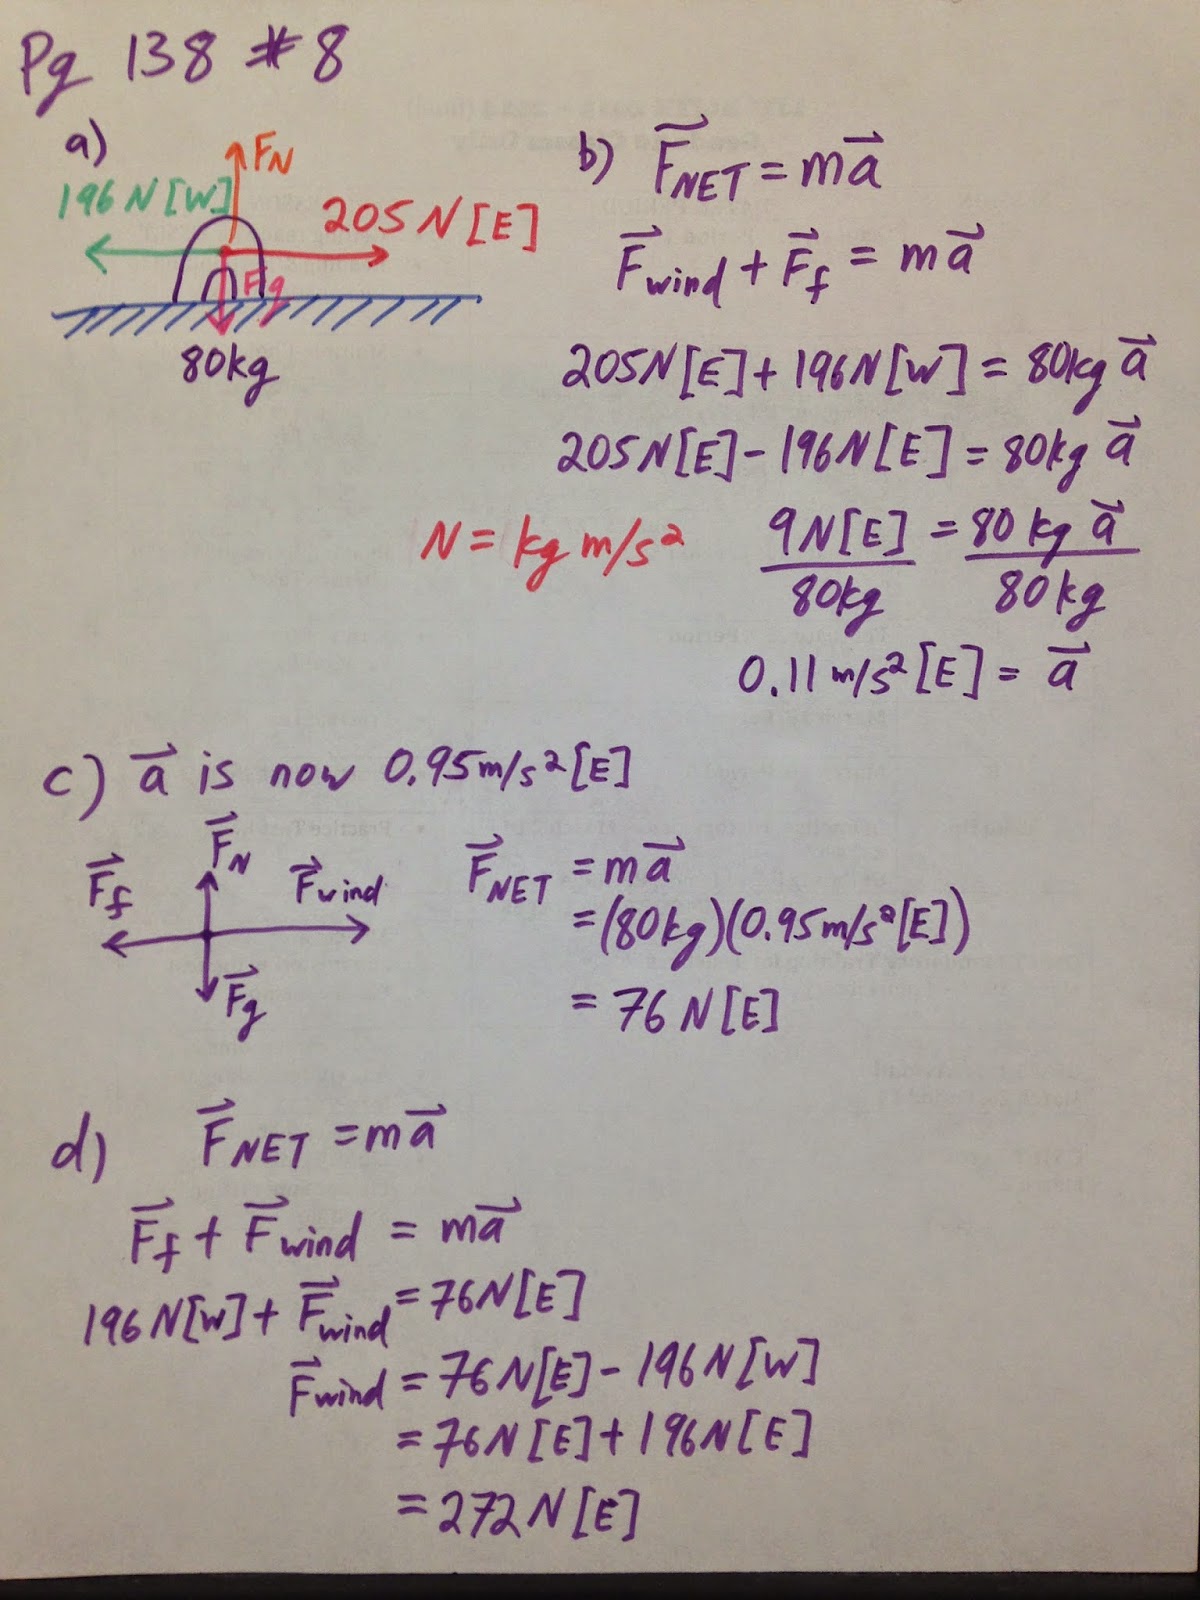 Pg 138 #8
a)
FN
196 N [W]
205 N [E]
Fg
80kg
b) F⃗NET = ma⃗
F⃗wind + F⃗f = ma⃗
205N[E] + 196N[W] = 80kg a⃗
205N[E] - 196N[E] = 80kg a⃗
N = kg m/s²
9N[E] = 80 kg a⃗
80kg 80kg
0.11 m/s² [E] = a⃗
c) a⃗ is now 0.95m/s² [E]
F⃗N
F⃗f
F⃗wind
F⃗g
F⃗NET = ma⃗
= (80kg)(0.95m/s²[E])
= 76 N [E]
d) F⃗NET = ma⃗
F⃗f + F⃗wind = ma⃗
196N[W] + F⃗wind = 76N[E]
F⃗wind = 76N[E] - 196N[W]
= 76N[E] + 196N[E]
= 272N[E]